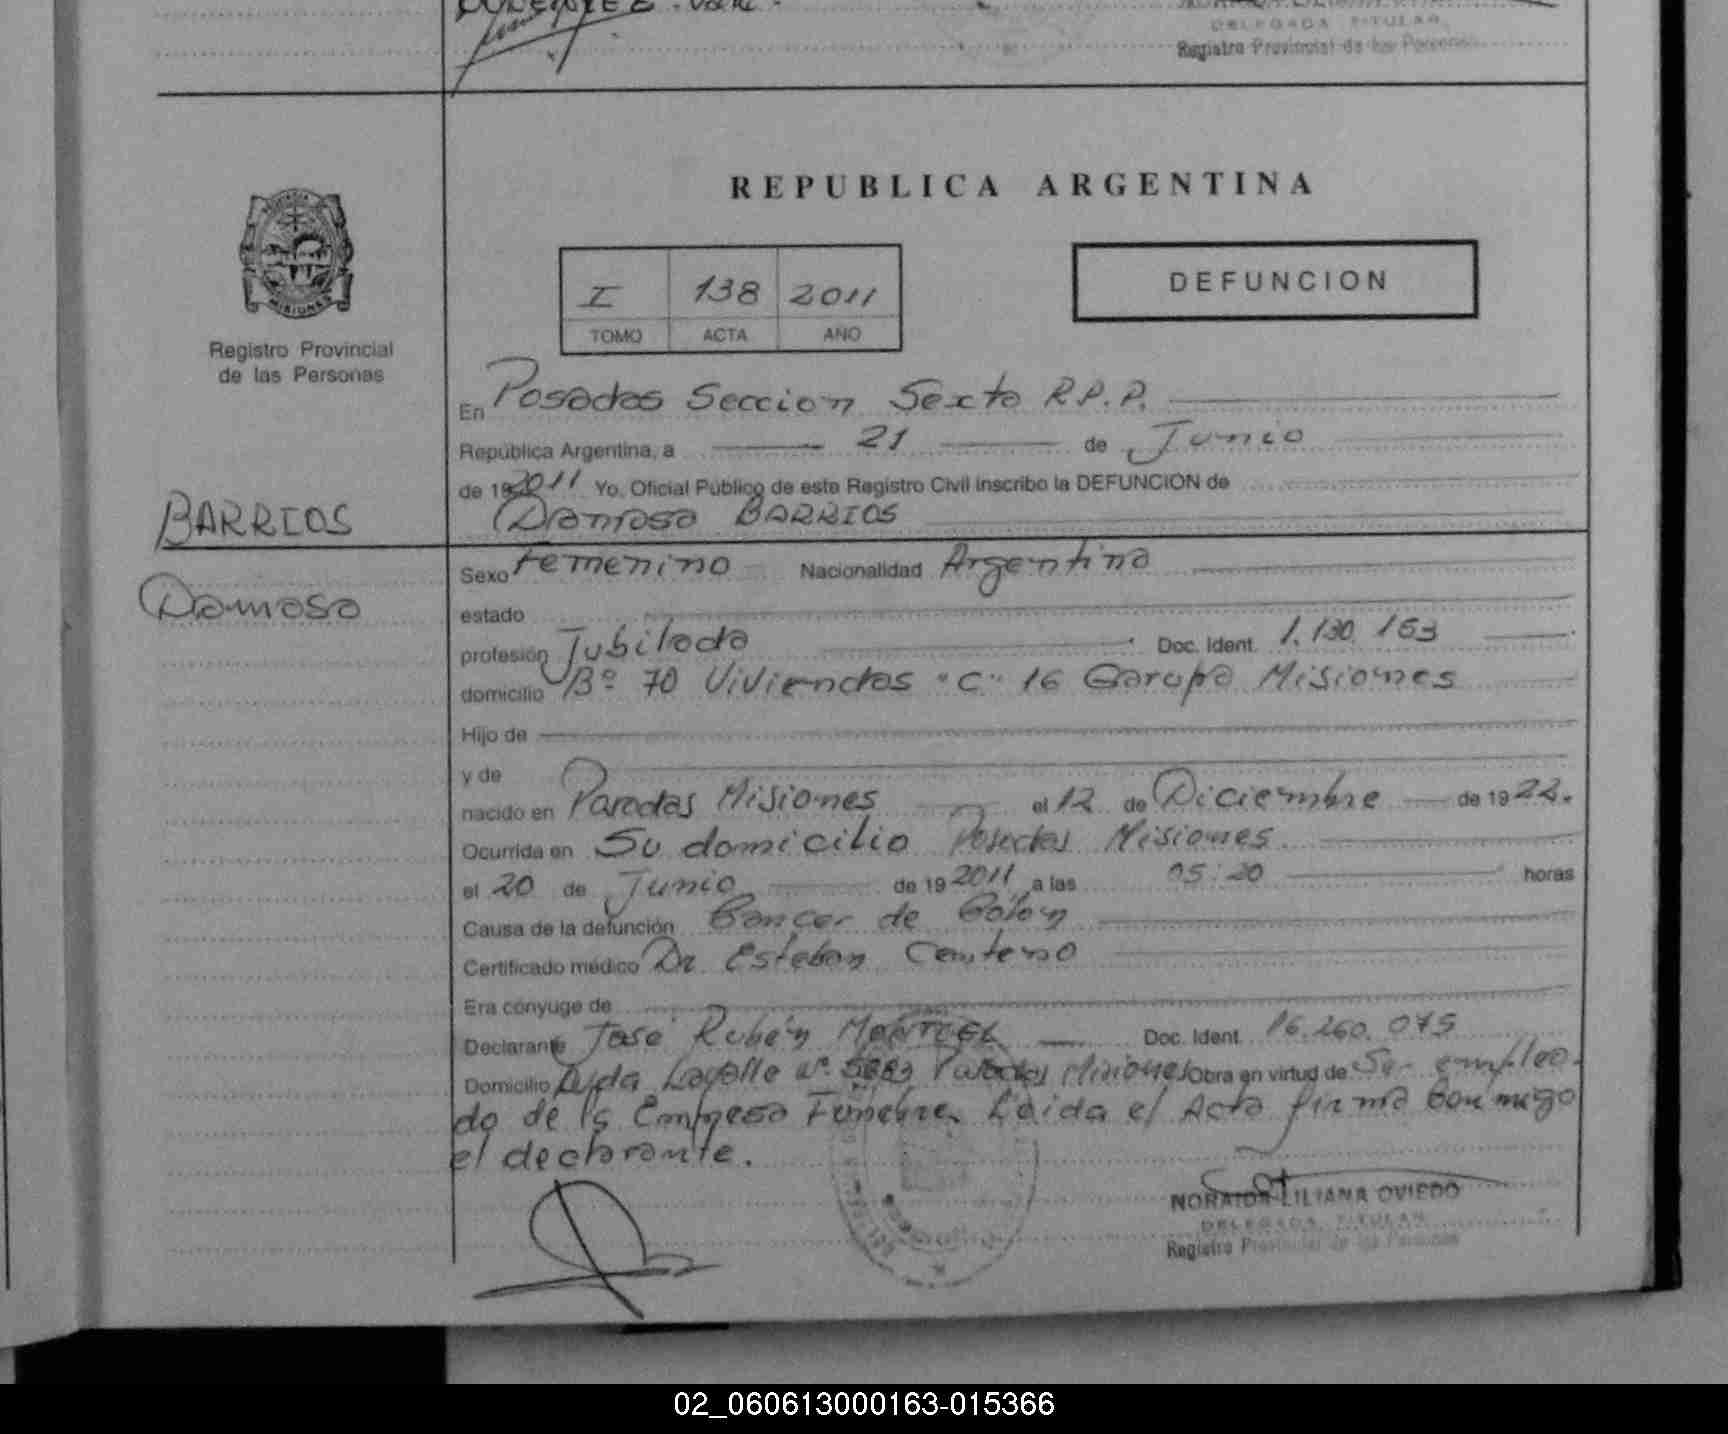 DELEGADA TITULAR
Registro Provincial de las Personas
REPUBLICA ARGENTINA
I 138 2011
TOMO ACTA AÑO
DEFUNCION
MISIONES
Registro Provincial
de las Personas
BARRIOS
Damasa
En Posadas Seccion Sexta R.P.P.
República Argentina, a 21 de Junio
de 19 2011 Yo, Oficial Público de este Registro Civil inscribo la DEFUNCION de
Damasa BARRIOS
Sexo Femenino Nacionalidad Argentina
estado
profesión Jubilada Doc. Ident. 1.130.163
domicilio Bº 70 Viviendas "C" 16 Garupa Misiones
Hijo de
y de
nacido en Posadas Misiones el 12 de Diciembre de 19 22.
Ocurrida en Su domicilio Posadas Misiones
el 20 de Junio de 19 2011 a las 05:20 horas
Causa de la defunción Cancer de Cólon
Certificado médico Dr. Esteban Centeno
Era cónyuge de
Declarante José Rubén Doc. Ident. 16.260.075
Domicilio Avda Lavalle Nº Posadas Misiones Obra en virtud de Ser emplea-
do de la Empresa Funebre. Leida el Acta firma conmigo
el declarante.
NORAIDA LILIANA OVIEDO
DELEGADA TITULAR
Registro Provincial de las Personas
02_060613000163-015366